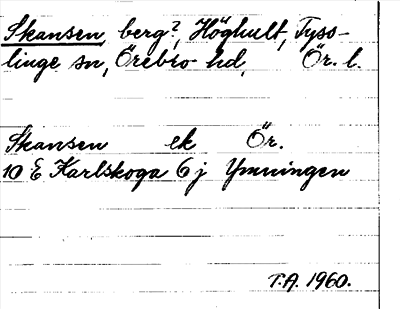 Skansen, berg?, Höghult, Tyss-
linge sn, Örebro hd, Ör. l.
Skansen ek Ör.
10 E Karlskoga 6 j Ymningen
T.A. 1960.